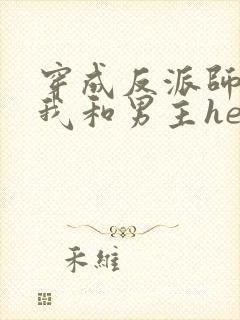 穿成反派師
我和男主he
禾維